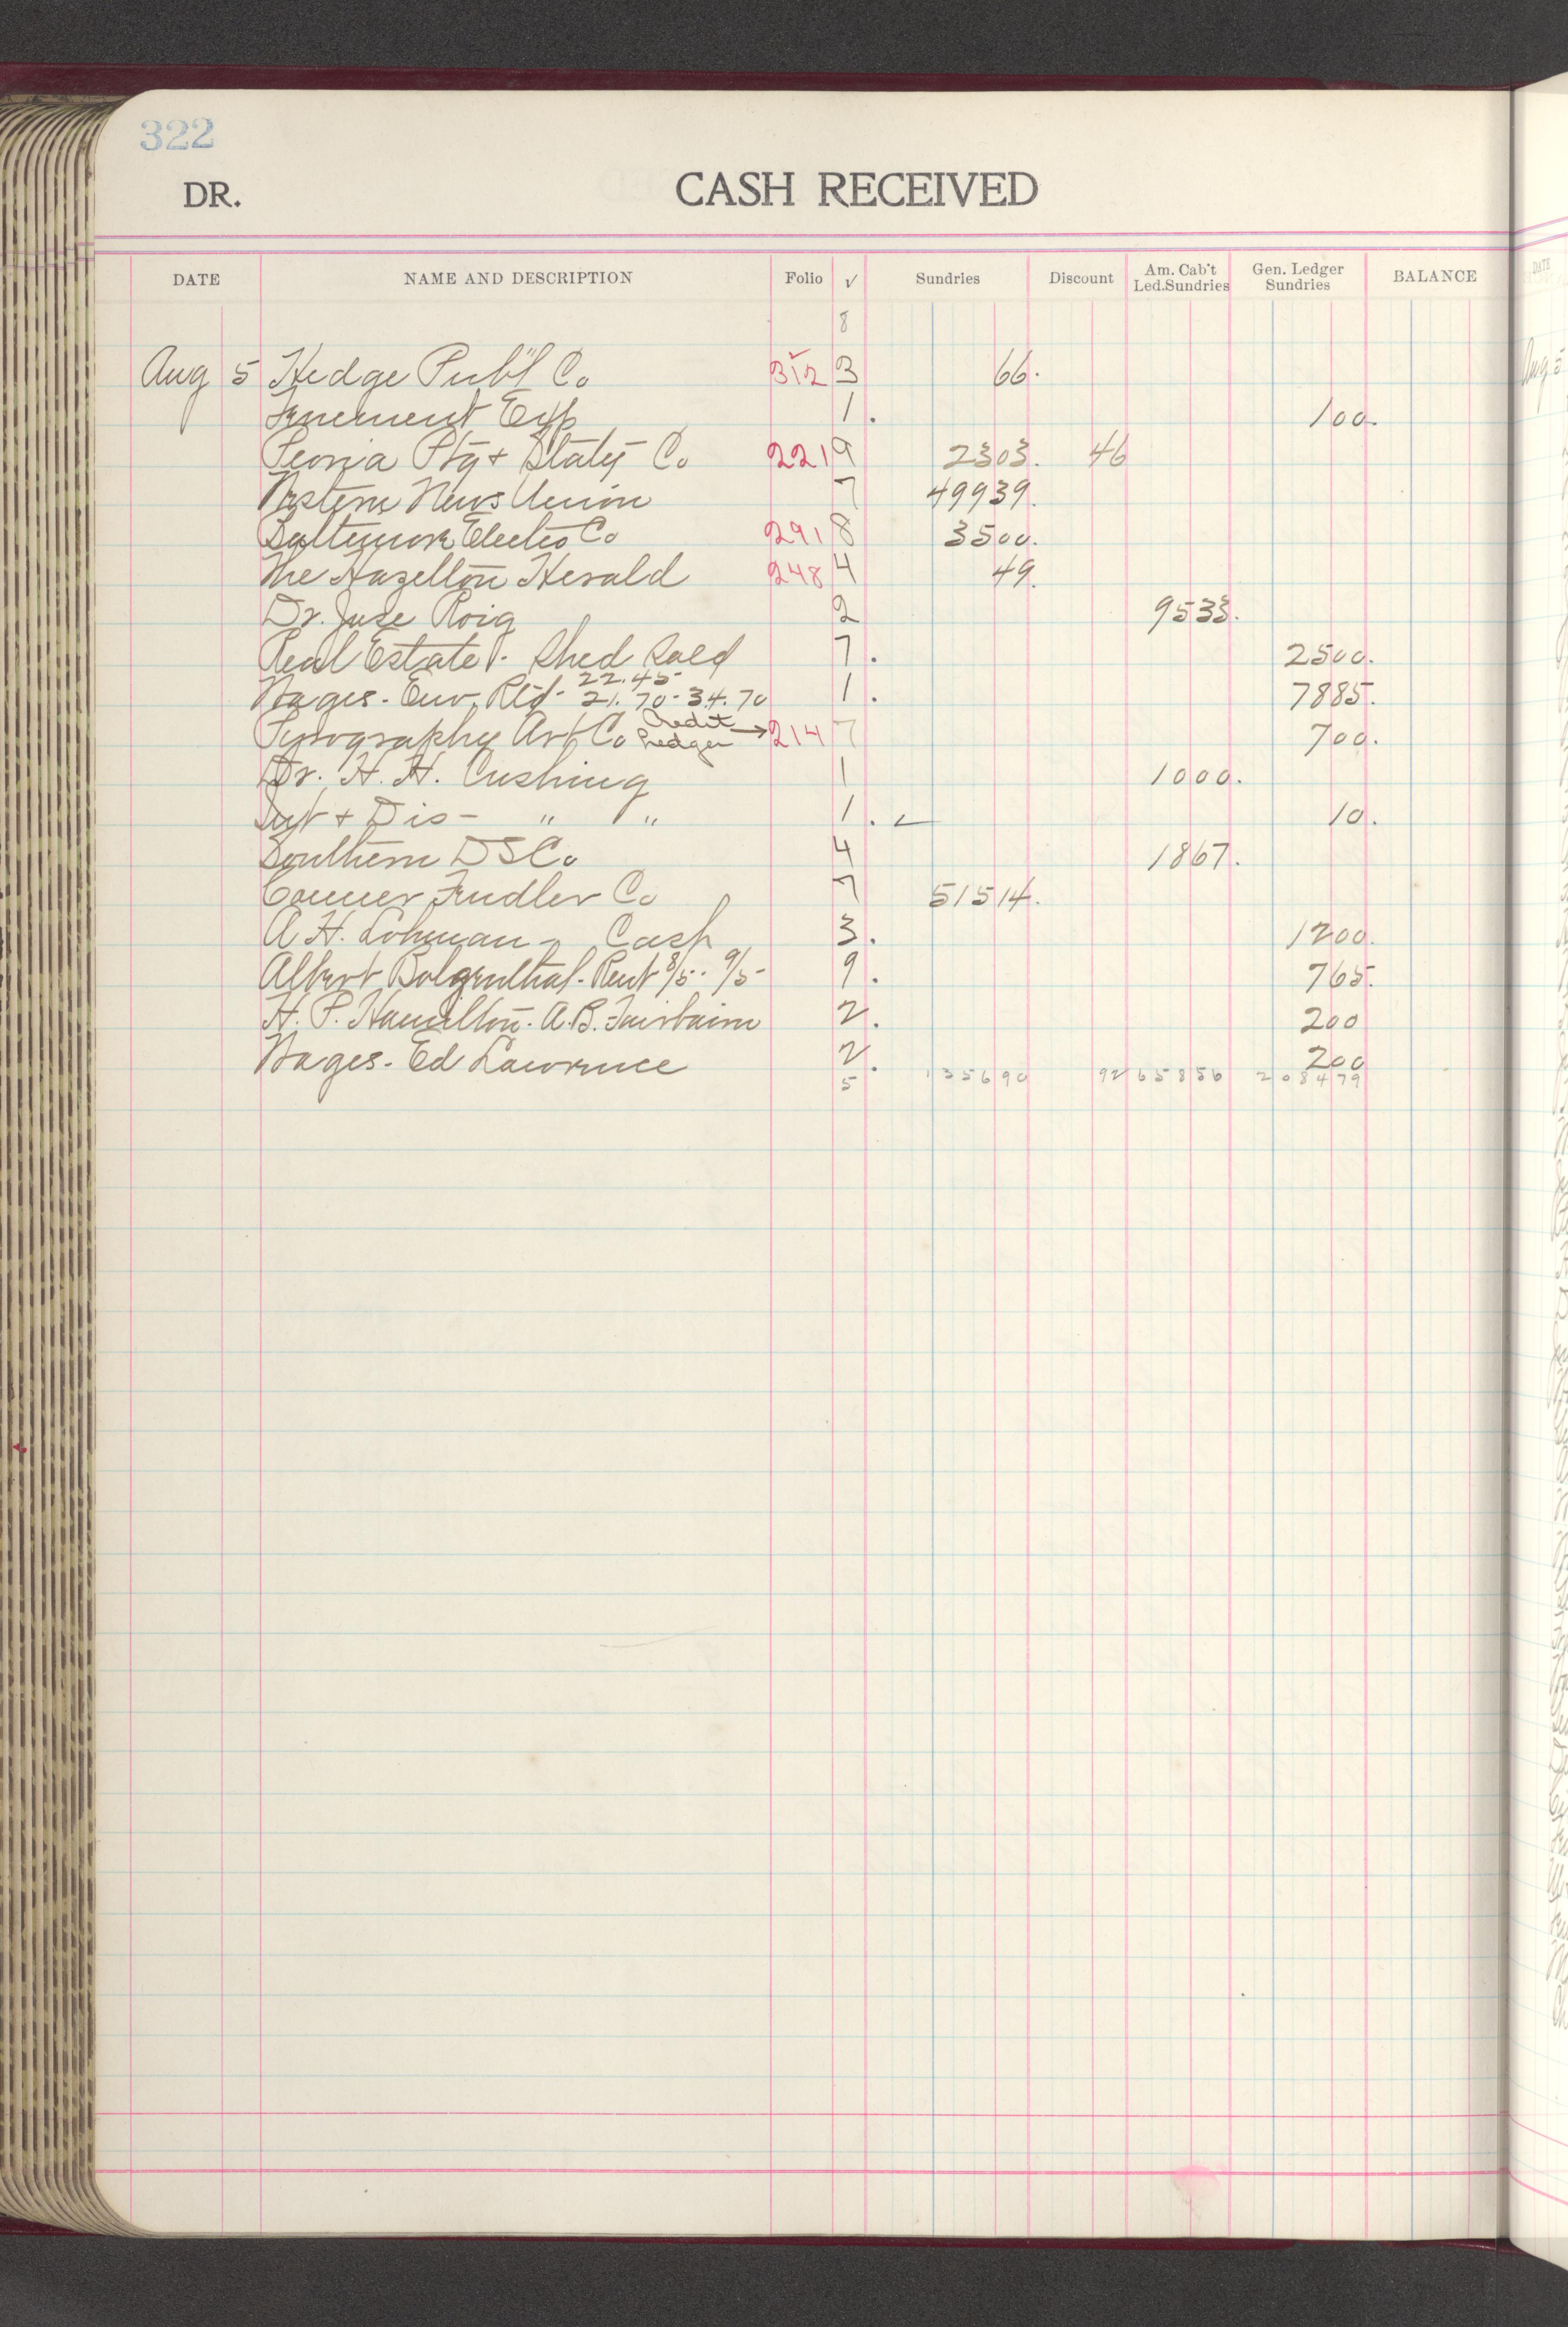 322
DR. CASH RECEIVED
DATE NAME AND DESCRIPTION Folio √ Sundries Discount Am. Cab't Led.Sundries Gen. Ledger Sundries BALANCE
8
Aug 5 Hedge Publ Co 312 3 66.
Tenement Exp 1. 100.
Peoria Ptg + Staty Co 221 9 2303. 46
Western News Union 7 49939.
Baltimore Electro Co 291 8 3500.
The Hazelton Herald 248 4 49.
Dr. Jude Roig 2 9533.
Real Estate 1. Shed Sold 7. 2500.
22.45
Wages - Env. Rtd - 21.70 - 34.70 1. 7885.
Pyrography Art Co Credit Ledger → 214 7 700.
Dr. H. H. Cushing 1 1000.
Int + Dis - " " 1. 10.
Southern DS Co 4 1867.
Conner Fendler Co 7 51514.
A H. Lohman - Cash 3. 1200.
Albert - Rent 8/5 - 9/5 - 9. 765.
H. P. Hamilton - A.B. Fairbairn 2. 200
Wages - Ed Lawrence 2. 200
5 135690 92 65856 208479
DATE
Aug 5